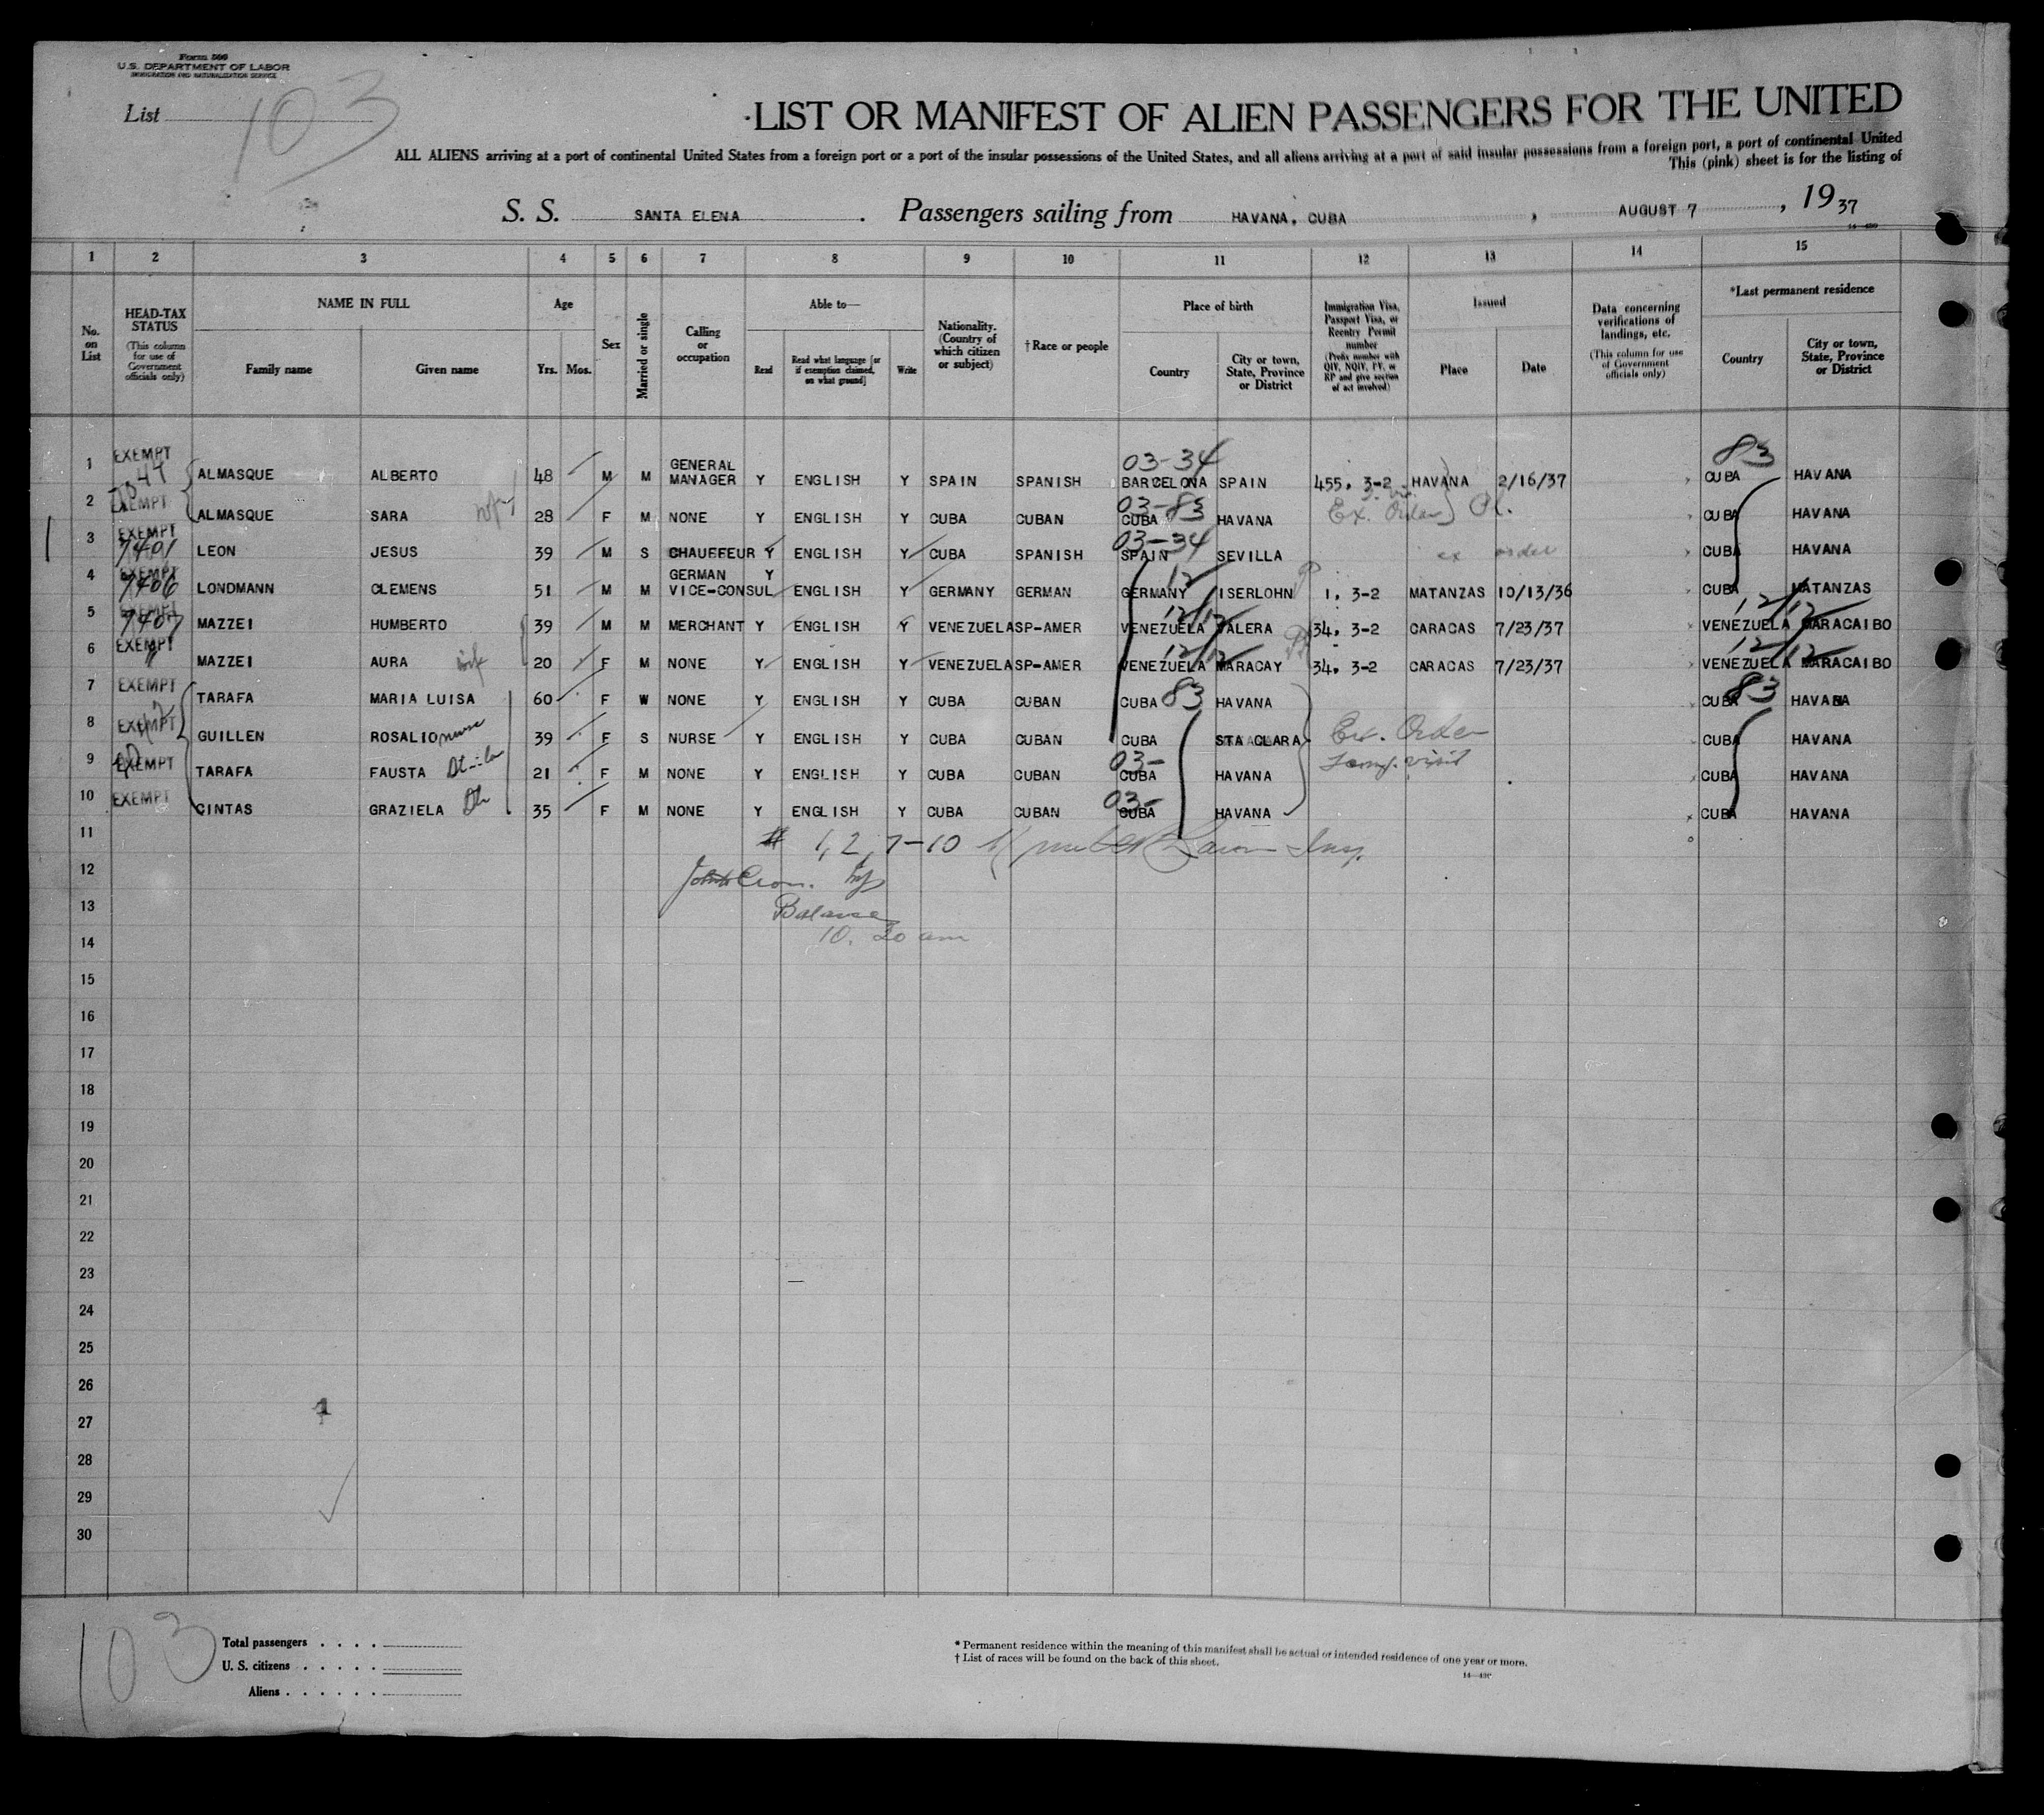 Form 500
U.S. DEPARTMENT OF LABOR
IMMIGRATION AND NATURALIZATION SERVICE
List 103
LIST OR MANIFEST OF ALIEN PASSENGERS FOR THE UNITED
ALL ALIENS arriving at a port of continental United States from a foreign port or a port of the insular possessions of the United States, and all aliens arriving at a port of said insular possessions from a foreign port, a port of continental United
This (pink) sheet is for the listing of
S. S. SANTA ELENA . Passengers sailing from HAVANA, CUBA , AUGUST 7 , 19 37
1 2 3 4 5 6 7 8 9 10 11 12 13 14 15
No. on List
HEAD-TAX STATUS
(This column for use of Government officials only)
NAME IN FULL
Family name Given name
Age
Yrs. Mos.
Sex
Married or single
Calling or occupation
Able to—
Read
Read what language [or if exemption claimed, on what ground]
Write
Nationality. (Country of which citizen or subject)
†Race or people
Place of birth
Country
City or town, State, Province or District
Immigration Visa, Passport Visa, or Reentry Permit number
(Prefix number with QIV, NQIV, PV, or RP and give section of act involved)
Issued
Place Date
Data concerning verifications of landings, etc.
(This column for use of Government officials only)
*Last permanent residence
Country
City or town, State, Province or District
03-34 83
1 EXEMPT ALMASQUE ALBERTO 48 M M GENERAL MANAGER Y ENGLISH Y SPAIN SPANISH BARCELONA SPAIN 455, 3-2 HAVANA 2/16/37 CUBA HAVANA
03-83
2 EXEMPT ALMASQUE SARA 28 F M NONE Y ENGLISH Y CUBA CUBAN CUBA HAVANA Ex. Order CUBA HAVANA
03-34
3 EXEMPT 7401 LEON JESUS 39 M S CHAUFFEUR Y ENGLISH Y CUBA SPANISH SPAIN SEVILLA ex order CUBA HAVANA
12
4 EXEMPT 7406 LONDMANN CLEMENS 51 M M GERMAN VICE-CONSUL Y ENGLISH Y GERMANY GERMAN GERMANY ISERLOHN 1, 3-2 MATANZAS 10/13/36 CUBA MATANZAS
12/12 12/12
5 EXEMPT 7407 MAZZEI HUMBERTO 39 M M MERCHANT Y ENGLISH Y VENEZUELA SP-AMER VENEZUELA VALERA 34, 3-2 CARACAS 7/23/37 VENEZUELA MARACAIBO
12/12 12/12
6 EXEMPT " MAZZEI AURA wife 20 F M NONE Y ENGLISH Y VENEZUELA SP-AMER VENEZUELA MARACAY 34, 3-2 CARACAS 7/23/37 VENEZUELA MARACAIBO
7 EXEMPT TARAFA MARIA LUISA 60 F W NONE Y ENGLISH Y CUBA CUBAN CUBA 83 HAVANA CUBA 83 HAVANA
8 EXEMPT GUILLEN ROSALIO nurse 39 F S NURSE Y ENGLISH Y CUBA CUBAN CUBA STA CLARA Ex. Order CUBA HAVANA
03-
9 EXEMPT TARAFA FAUSTA 21 F M NONE Y ENGLISH Y CUBA CUBAN CUBA HAVANA Temp. visit CUBA HAVANA
03-
10 EXEMPT CINTAS GRAZIELA 35 F M NONE Y ENGLISH Y CUBA CUBAN CUBA HAVANA CUBA HAVANA
11 # 1, 2, 7-10 Insp.
12
13 Balance
14 10.20 am
15
16
17
18
19
20
21
22
23
24
25
26
27
28
29
30
103
Total passengers . . . .
U. S. citizens . . . . .
Aliens . . . . . .
* Permanent residence within the meaning of this manifest shall be actual or intended residence of one year or more.
† List of races will be found on the back of this sheet.